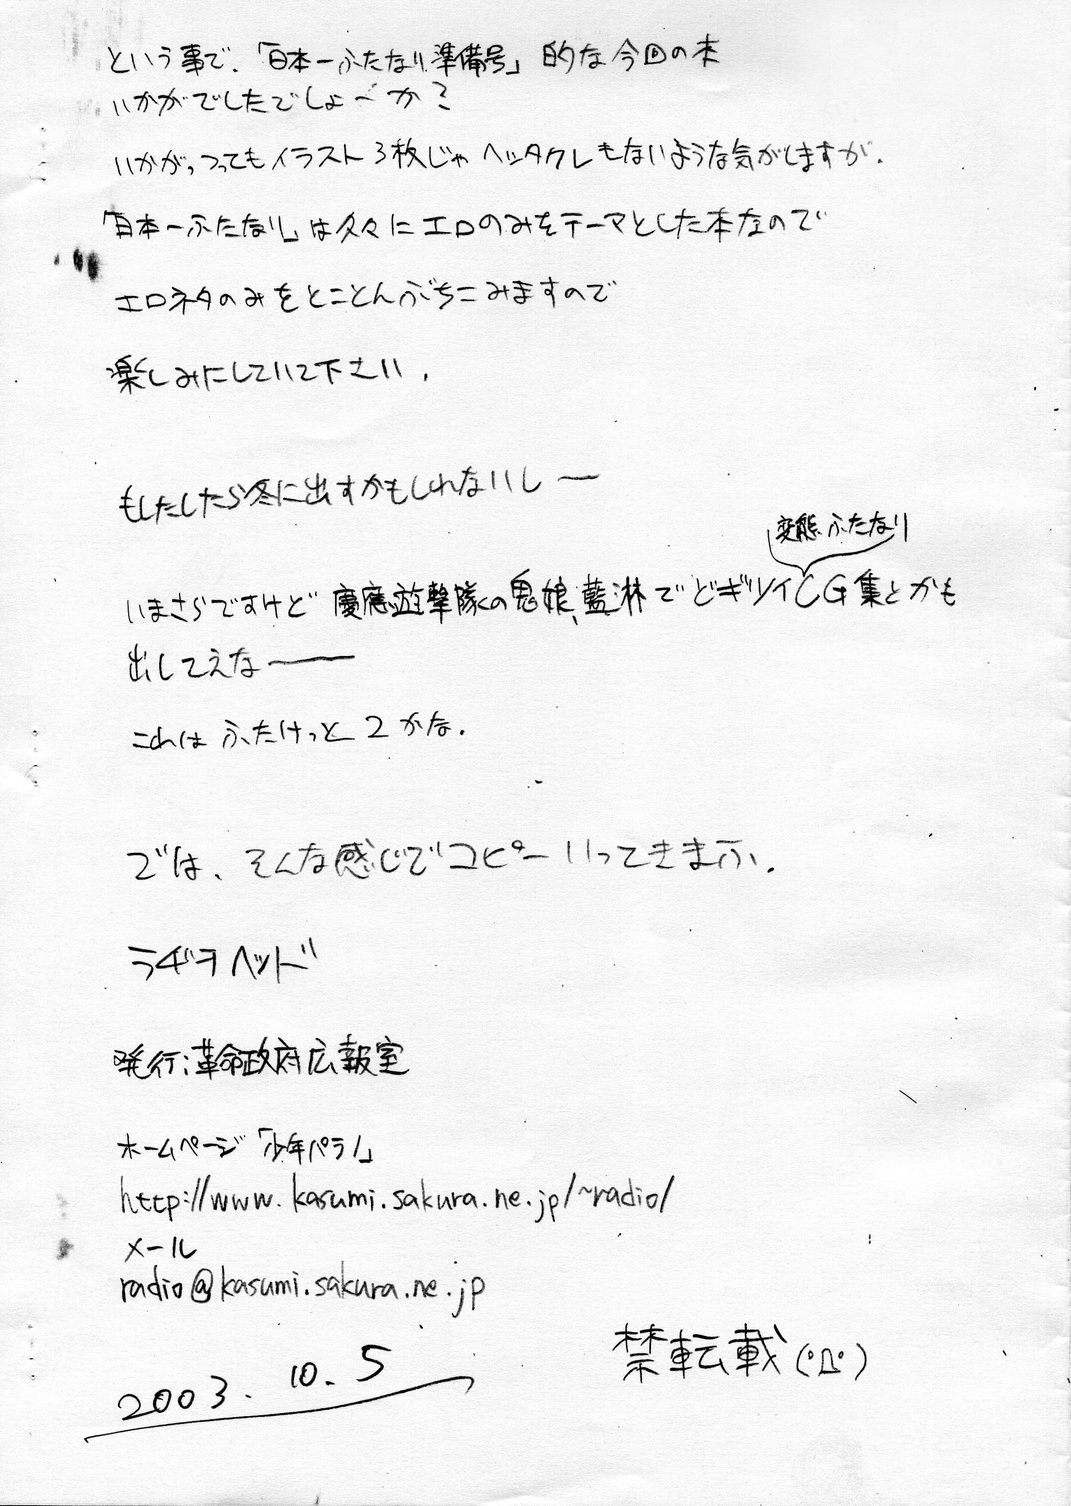 という事で、「日本一ふたなり準備号」的な今回の本
いかがでしたでしょーか?
いかがっつってもイラスト3枚じゃヘッタクレもないような気がしますが.
「日本一ふたなり」は久々にエロのみをテーマとした本なので
エロネタのみをとことんぶちこみますので
楽しみにしていて下さい.
もしたしたら冬に出すかもしれないしー
変態ふたなり
いまさらですけど慶應遊撃隊の鬼娘、藍淋でどギツイCG集とかも
出してえなー
これはふたけっと2かな.
では、そんな感じでコピーいってきまふ.
ラヂヲヘッド
発行:革命政府広報室
ホームページ「少年パラノ」
http://www.kasumi.sakura.ne.jp/~radio/
メール
radio@kasumi.sakura.ne.jp
禁転載(゚Д゚)
2003.10.5